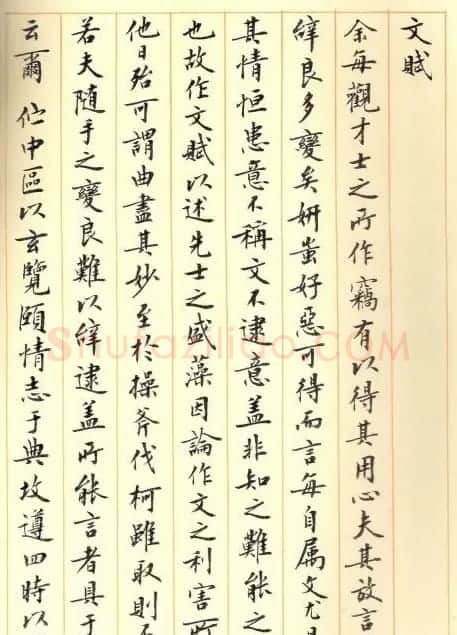 文賦
余每觀才士之所作竊有以得其用心夫其放言
辭良多變矣妍蚩好惡可得而言每自属文尤
其情恒患意不稱文不逮意蓋非知之難能之
也故作文賦以述先士之盛藻因論作文之利害所
他日殆可謂曲盡其妙至於操斧伐柯雖取則不
若夫随手之變良難以辭逮蓋所能言者具于
云爾 伫中區以玄覽頤情志于典坟遵四時以
ShufaZiliao.COM